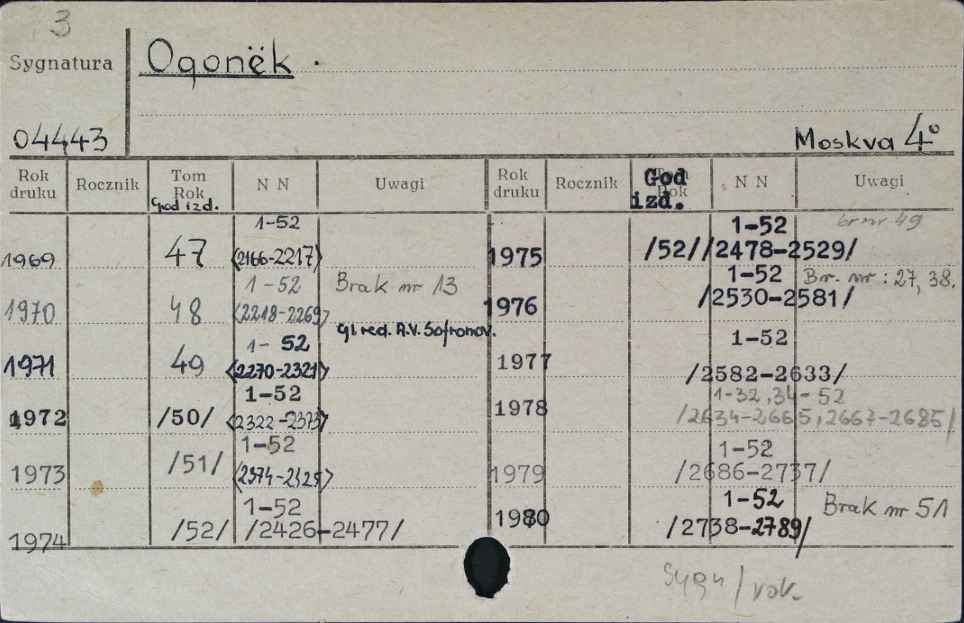 3
Sygnatura
Ogonëk .
04443
Moskva 4°
Rok druku Rocznik Tom Rok God izd. N N Uwagi
1969 47 1-52 <2166-2217>
1970 48 1-52 <2218-2269> Brak nr 13
gl red. A.V. Sofronov.
1971 49 1-52 <2270-2321>
1972 /50/ 1-52 <2322-2373>
1973 /51/ 1-52 <2374-2425>
1974 /52/ 1-52 /2426-2477/
Rok druku Rocznik God izd. N N Uwagi
1975 /52/ 1-52 /2478-2529/ br nr 49
1976 1-52 /2530-2581/ Br. nr : 27, 38.
1977 1-52 /2582-2633/
1978 1-32, 34-52 /2634-2665, 2667-2685/
1979 1-52 /2686-2737/
1980 1-52 /2738-2789/ Brak nr 51
Sygn / rok.